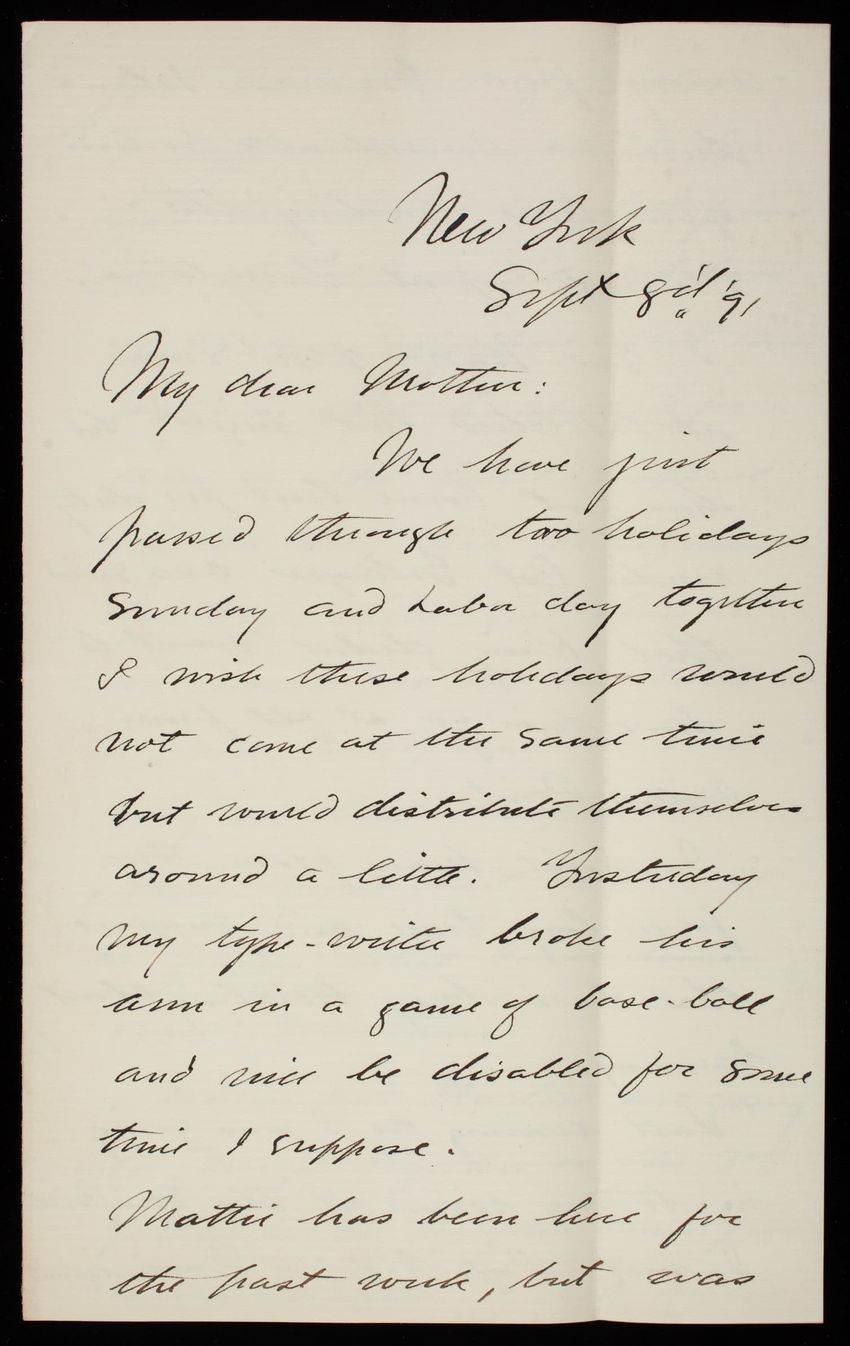 New York
Sept 8d '91
My dear Mother:
We have just
passed through two holidays
Sunday and Labor day together
I wish these holidays would
not come at the same time
but would distribute themselves
around a little. Yesterday
my type-writer broke his
arm in a game of base-ball
and will be disabled for some
time I suppose.
Mattie has been here for
the past week, but was